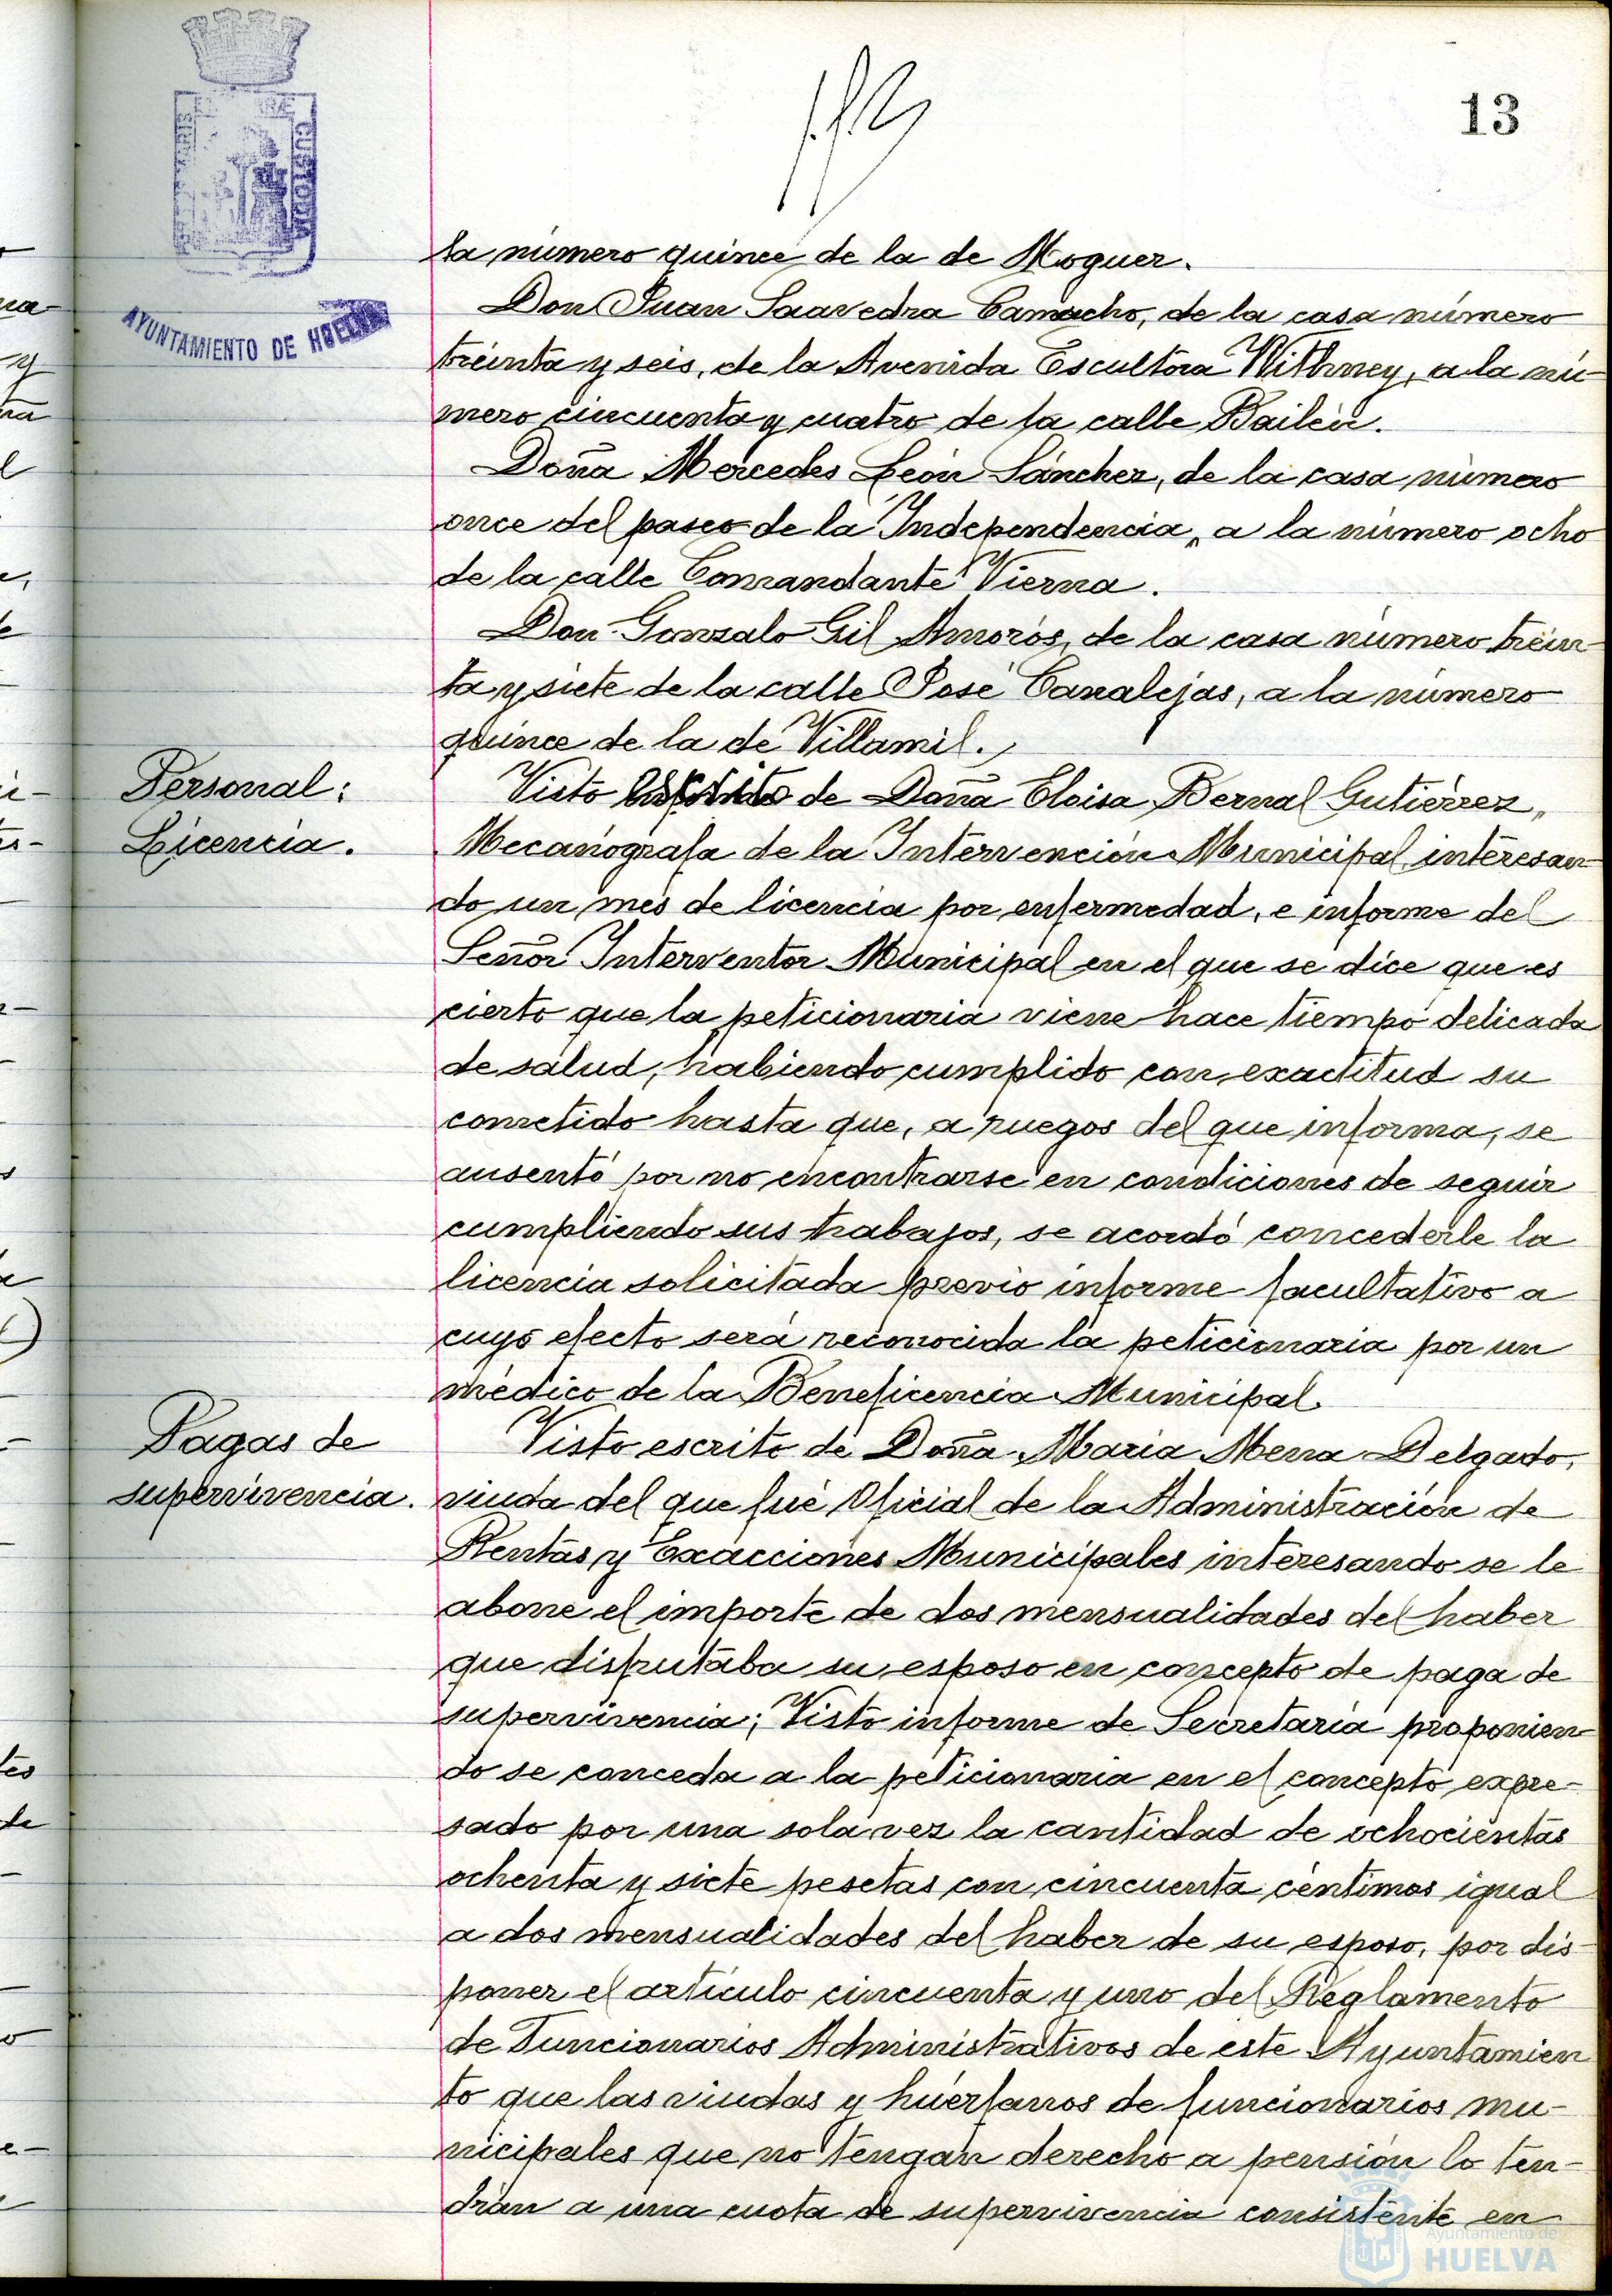 13
PORTUS MARIS ET TERRAE CUSTODIA
AYUNTAMIENTO DE HUELVA
la número quince de la de Moguer.
Don Juan Saavedra Camacho, de la casa número
treinta y seis, de la Avenida Escultora Withney, a la nú-
mero cincuenta y cuatro de la calle Bailén.
Doña Mercedes León Sánchez, de la casa número
once del paseo de la Independencia, a la número ocho
de la calle Comandante Vierna.
Don Gonzalo Gil Amorós, de la casa número trein-
ta y siete de la calle José Canalejas, a la número
quince de la de Villamil.
Personal:
Licencia.
Visto escrito de Doña Eloisa Bernal Gutiérrez,
Mecanógrafa de la Intervención Municipal interesan-
do un mes de licencia por enfermedad, e informe del
Señor Interventor Municipal en el que se dice que es
cierto que la peticionaria viene hace tiempo delicada
de salud, habiendo cumplido con exactitud su
cometido hasta que, a ruegos del que informa, se
ausentó por no encontrarse en condiciones de seguir
cumpliendo sus trabajos, se acordó concederle la
licencia solicitada previo informe facultativo a
cuyo efecto será reconocida la peticionaria por un
médico de la Beneficencia Municipal.
Pagas de
supervivencia.
Visto escrito de Doña María Mena Delgado,
viuda del que fué Oficial de la Administración de
Rentas y Exacciones Municipales interesando se le
abone el importe de dos mensualidades del haber
que disfrutaba su esposo en concepto de paga de
supervivencia; Visto informe de Secretaría proponien-
do se conceda a la peticionaria en el concepto expre-
sado por una sola vez la cantidad de ochocientas
ochenta y siete pesetas con cincuenta céntimos igual
a dos mensualidades del haber de su esposo, por dis-
poner el artículo cincuenta y uno del Reglamento
de Funcionarios Administrativos de este Ayuntamien
to que las viudas y huérfanos de funcionarios mu-
nicipales que no tengan derecho a pensión lo ten-
drán a una cuota de supervivencia consistente en
Ayuntamiento de
HUELVA